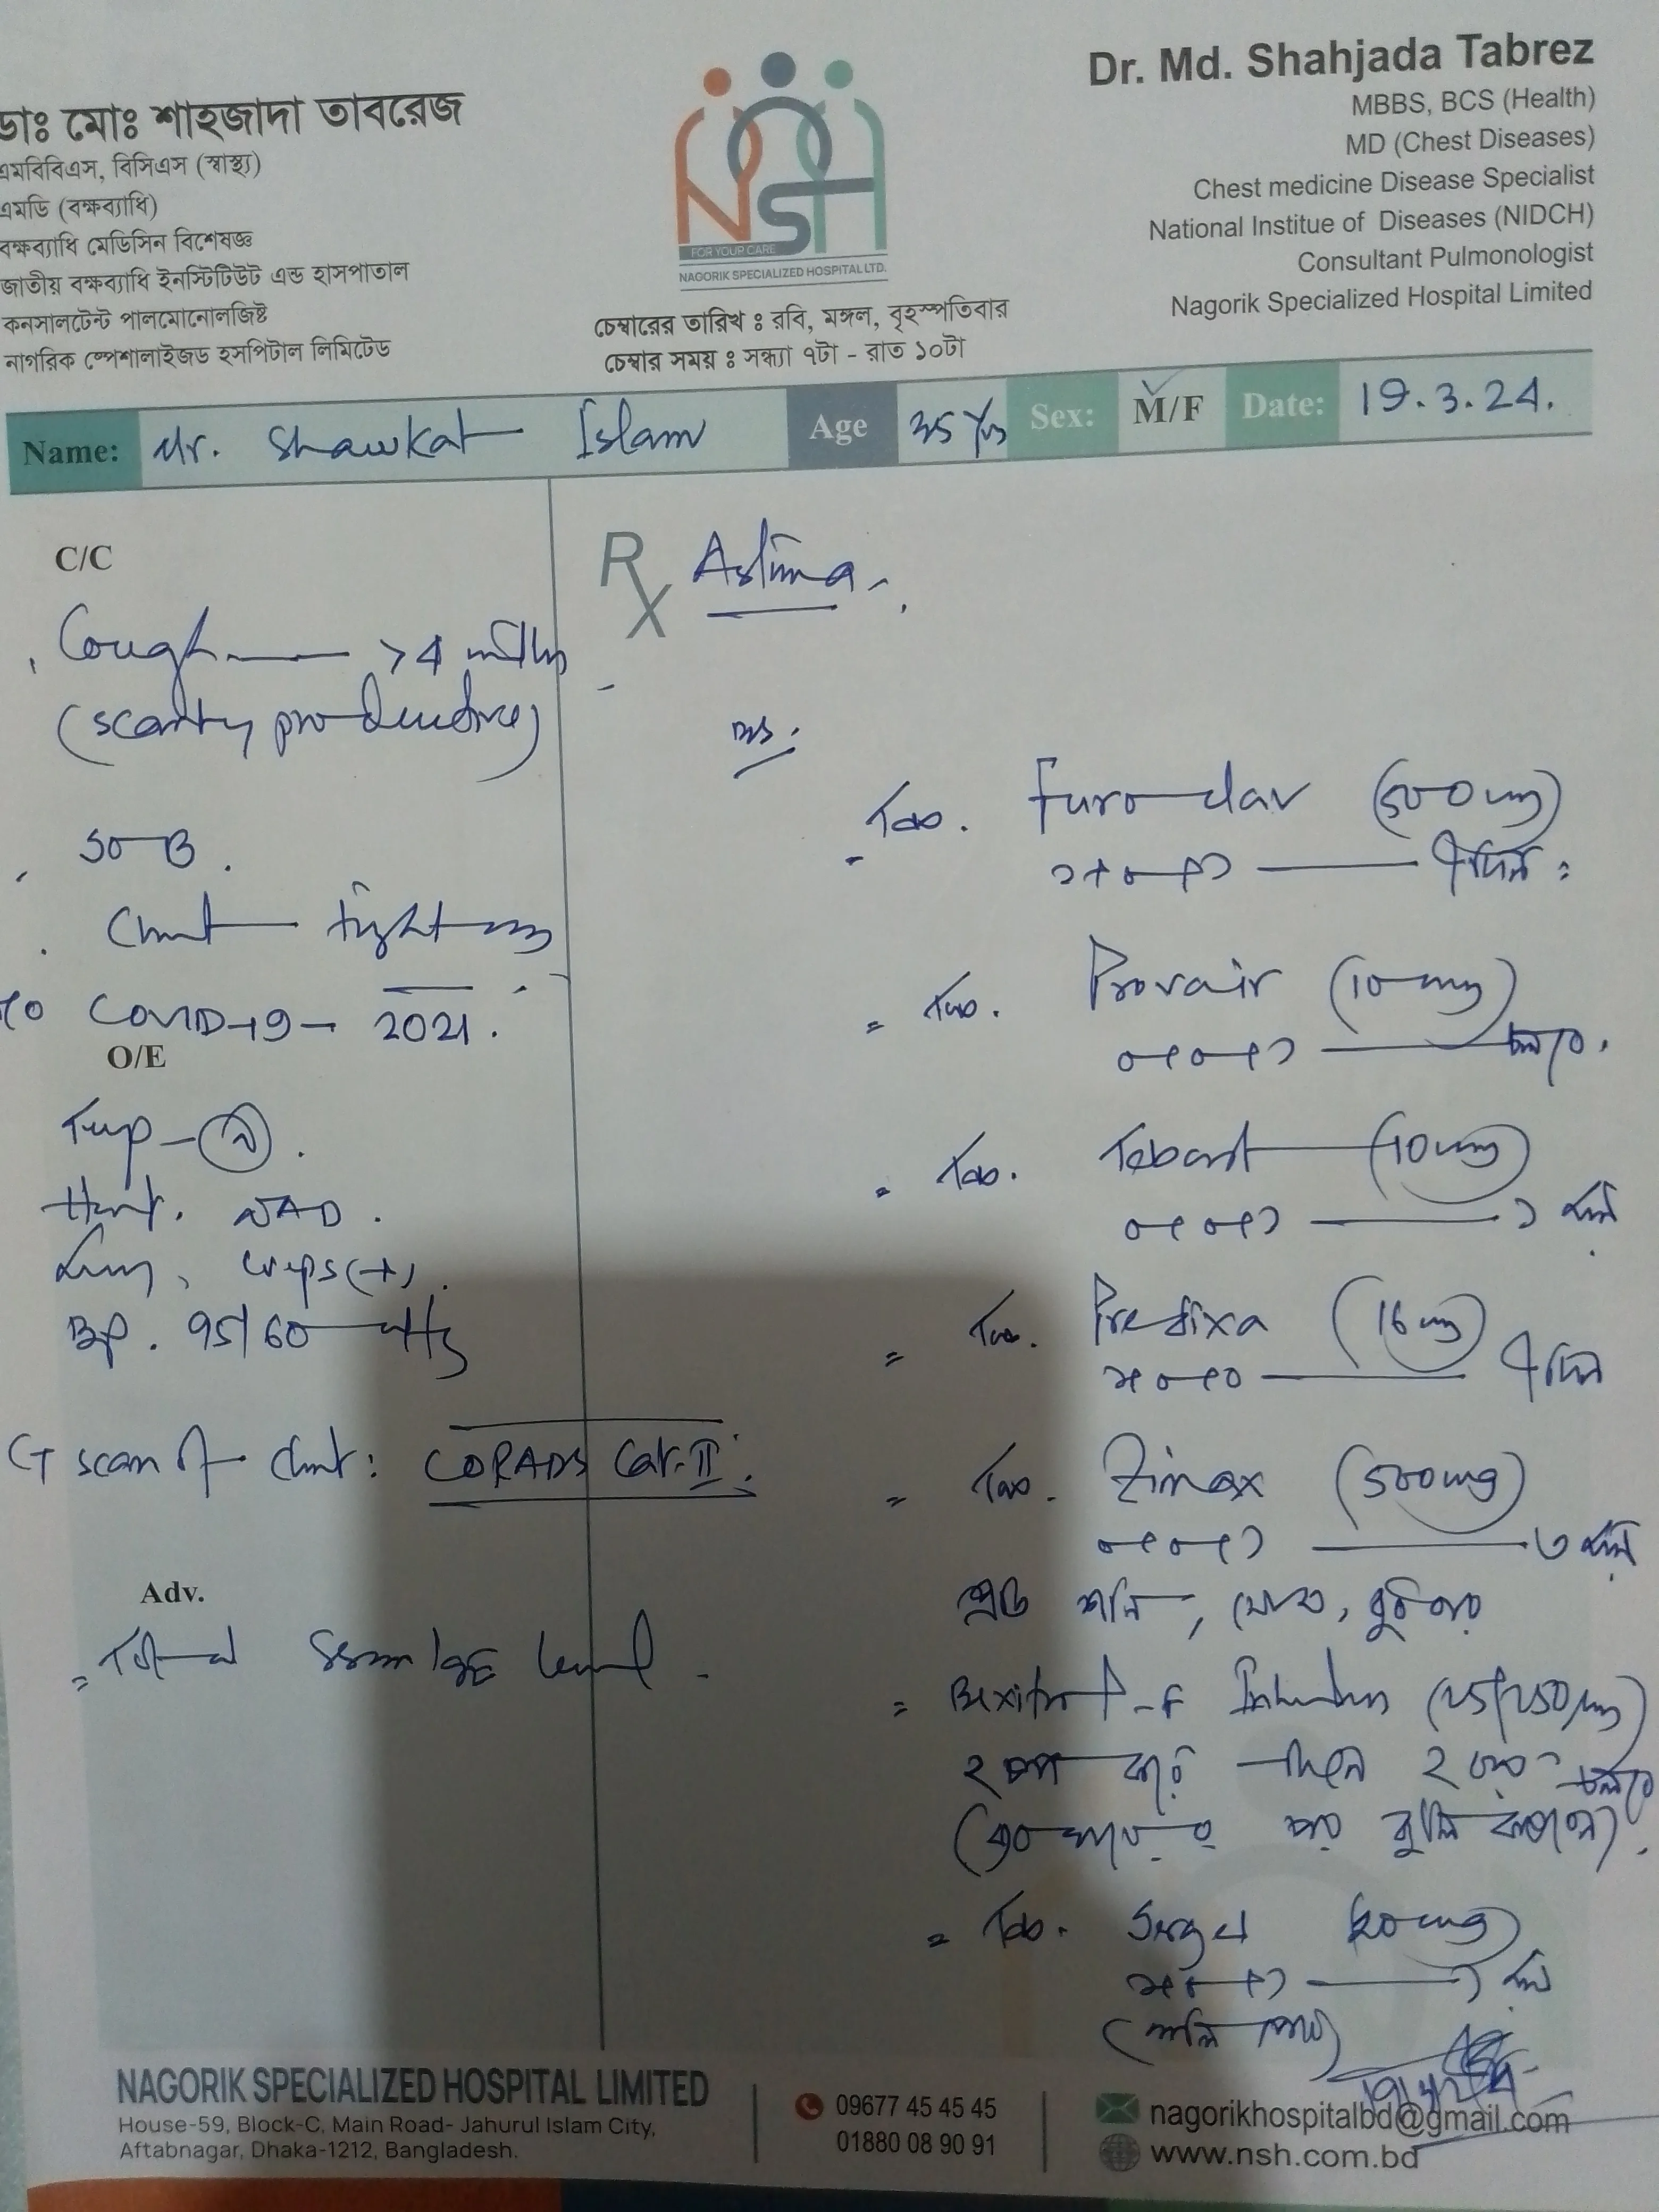 ডাঃ মোঃ শাহজাদা তাবরেজ
এমবিবিএস, বিসিএস (স্বাস্থ্য)
এমডি (বক্ষব্যাধি)
বক্ষব্যাধি মেডিসিন বিশেষজ্ঞ
জাতীয় বক্ষব্যাধি ইনস্টিটিউট এন্ড হাসপাতাল
কনসালটেন্ট পালমোনোলজিষ্ট
নাগরিক স্পেশালাইজড হসপিটাল লিমিটেড
NSH
FOR YOUR CARE
NAGORIK SPECIALIZED HOSPITAL LTD.
চেম্বারের তারিখ ঃ রবি, মঙ্গল, বৃহস্পতিবার
চেম্বার সময় ঃ সন্ধ্যা ৭টা - রাত ১০টা
Dr. Md. Shahjada Tabrez
MBBS, BCS (Health)
MD (Chest Diseases)
Chest medicine Disease Specialist
National Institue of Diseases (NIDCH)
Consultant Pulmonologist
Nagorik Specialized Hospital Limited
Name: Mr. Shawkat Islam Age 35 Yrs Sex: M/F Date: 19.3.24.
C/C
Cough > 4 mths
(scanty productive)
SOB.
Chest tightness
COVID-19 - 2021.
O/E
Temp - N.
Heart. NAD.
Lung, creps(+).
BP. 95/60 mmHg
CT scan of chest: CORADS Cat-II.
Adv.
Serum IgE level.
Rx
Tab. Furoclav (500mg)
১+০+১ ৭দিন
Tab. Provair (10mg)
০+০+১ চলবে.
Tab. Tebast (10mg)
০+০+১ ১ মাস
Tab. Predixa (16mg)
১+০+০ ৭দিন
Tab. Zimax (500mg)
০+০+১
প্রতি শনি, সোম, বুধবার
Bexitrol-F Inhaler (25/250mg)
২ চাপ করে দিনে ২ বার চলবে
Tab. Sergel 20mg
১+০+১ ১ মাস
(খালি পেটে)
NAGORIK SPECIALIZED HOSPITAL LIMITED
House-59, Block-C, Main Road- Jahurul Islam City,
Aftabnagar, Dhaka-1212, Bangladesh.
09677 45 45 45
01880 08 90 91
nagorikhospitalbd@gmail.com
www.nsh.com.bd